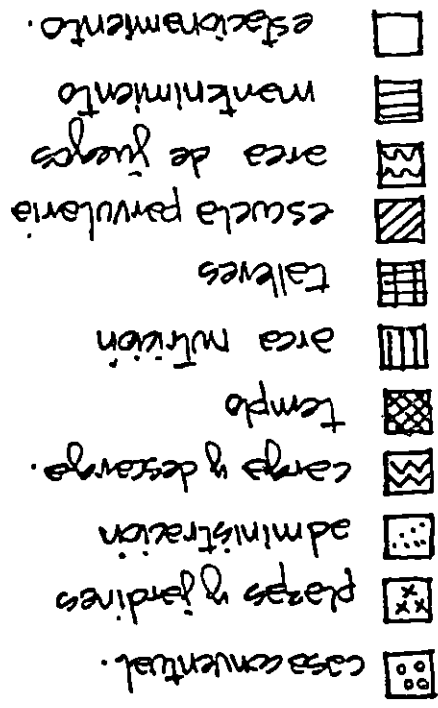 casa conventual.
plazas y jardines
administración
carga y descarga.
templo
area nutrición
talleres
escuela parvularia
area de juegos
mantenimiento
estacionamiento.